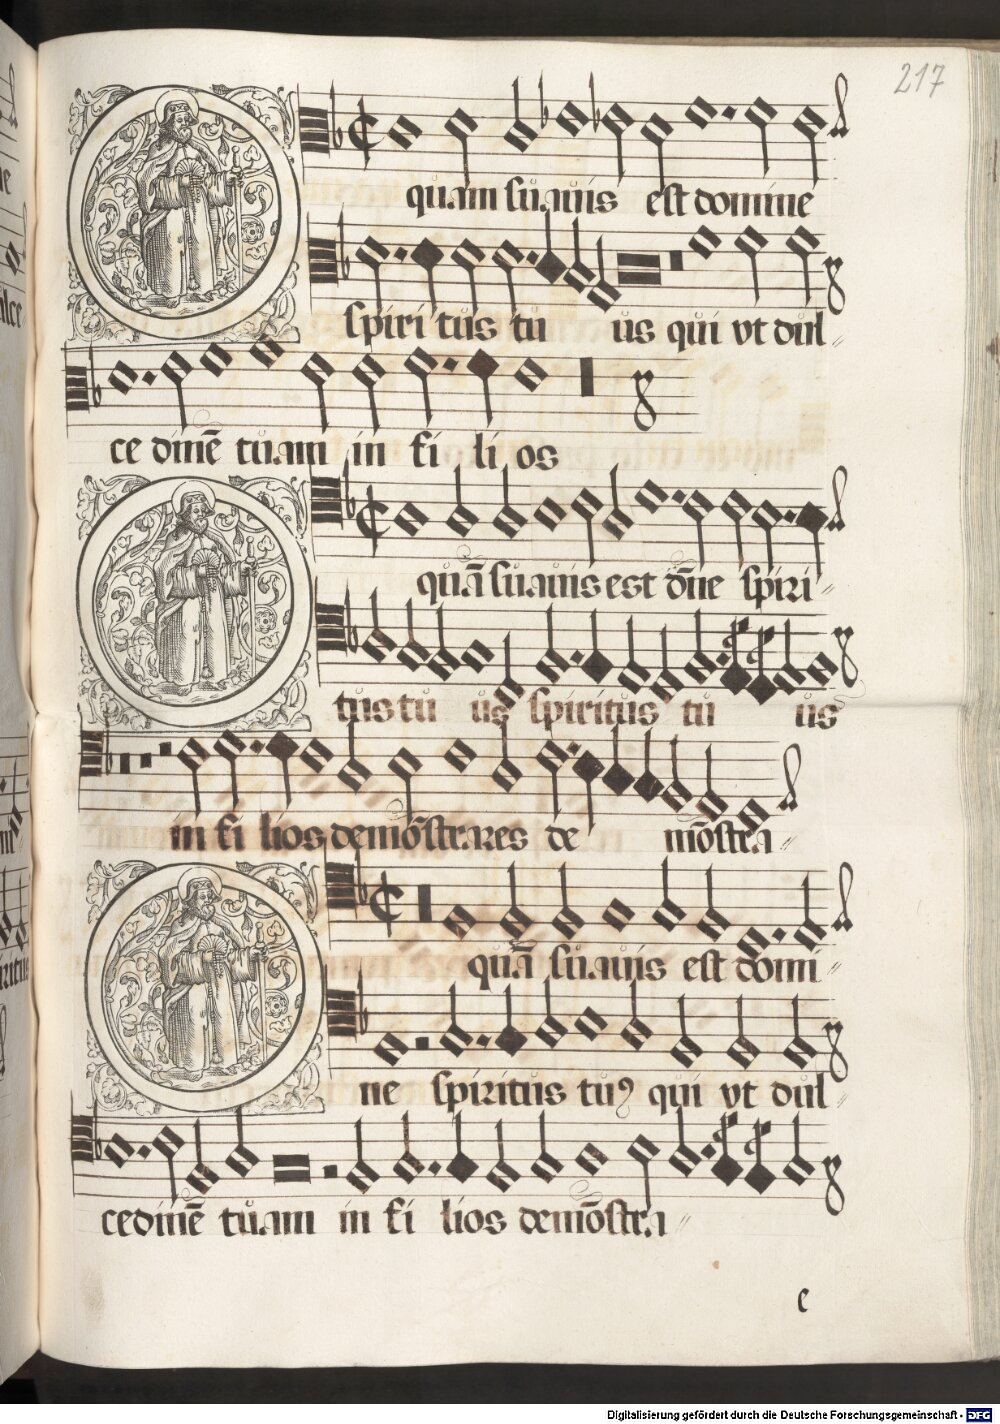 217
O quam suauis est domine
spiritus tu us qui vt dul
ce dinē tuam in fi li os
O quā suauis est dn̄e spiri
tus tu us spiritus tu us
in fi lios demōstrares de mōstra
O quā suauis est domi
ne spiritus tuꝰ qui vt dul
cedinē tuam in fi lios demōstra
c
Digitalisierung gefördert durch die Deutsche Forschungsgemeinschaft - DFG